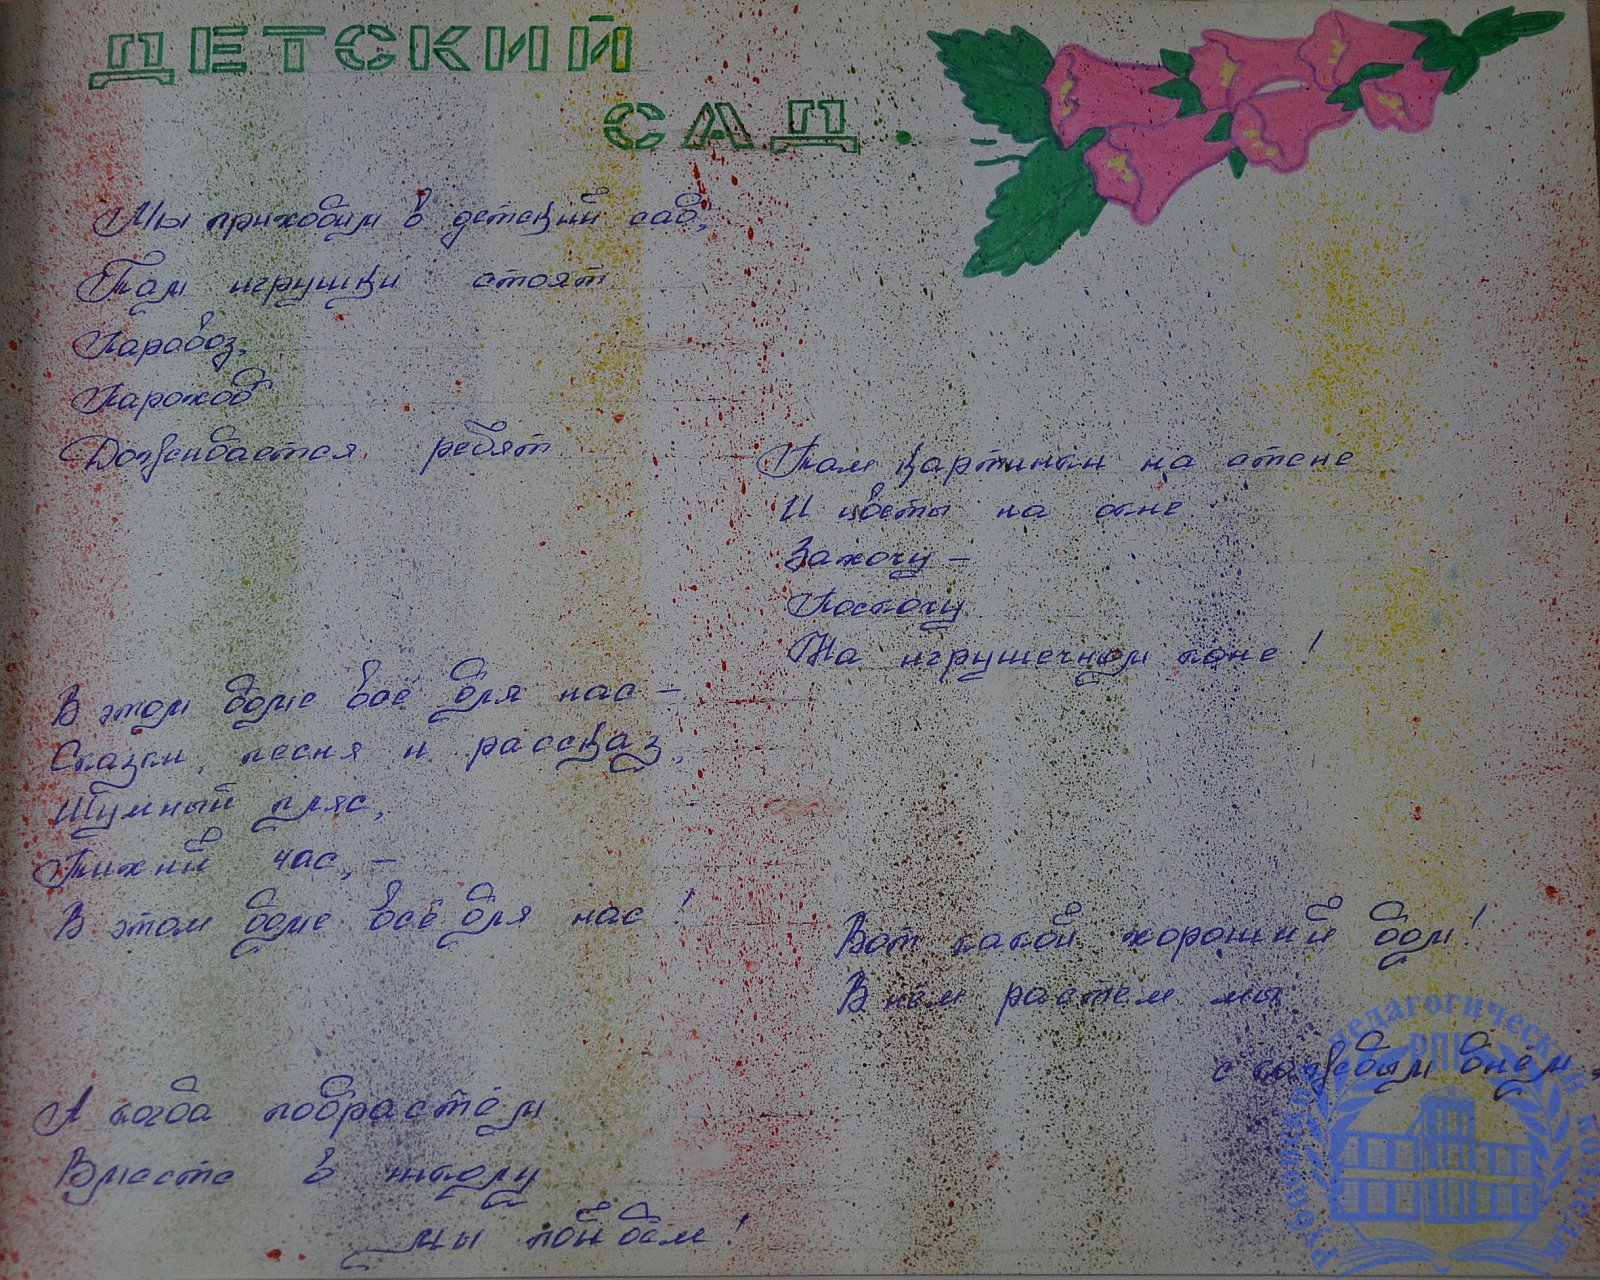 ДЕТСКИЙ
САД.
Мы приходим в детский сад,
Там игрушки стоят
Паравоз,
Пароход
Дожидается ребят
Там картинки на стене
И цветы на окне
Захочу –
Поскочу
На игрушечном поне!
В этом доме всё для нас –
Сказки, песня и рассказ,
Шумный пляс,
Тихий час, –
В этом доме всё для нас!
Вот какой хороший дом!
В нём растем мы
с каждым днем,
А когда подрастём
Вместе в школу
мы пойдем!
Рубцовский педагогический колледж
РПК